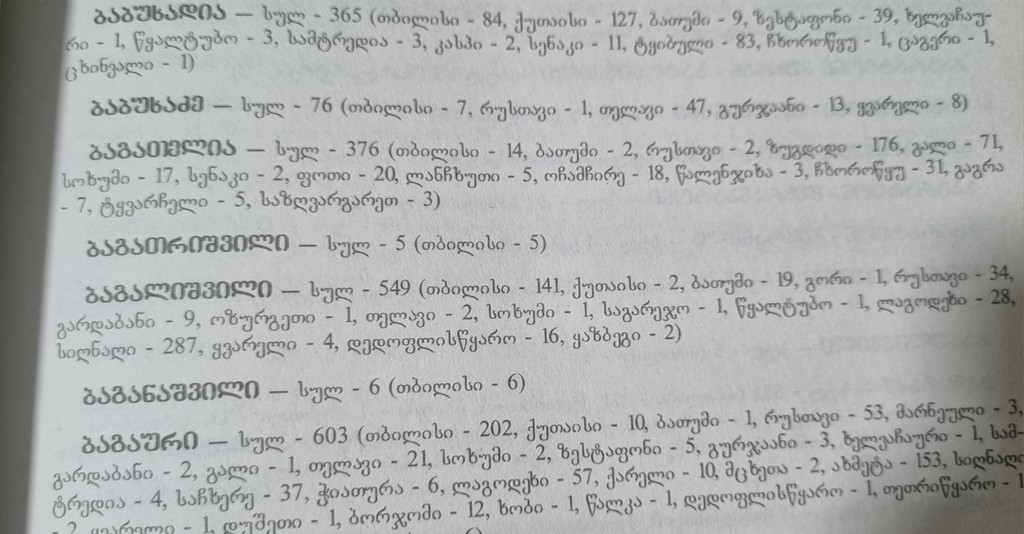 ᲑᲐᲑᲣᲮᲐᲓᲘᲐ — სულ - 365 (თბილისი - 84, ქუთაისი - 127, ბათუმი - 9, ზესტაფონი - 39, ხელვაჩაუ-
რი - 1, წყალტუბო - 3, სამტრედია - 3, კასპი - 2, სენაკი - 11, ტყიბული - 83, ჩხოროწყუ - 1, ცაგერი - 1,
ცხინვალი - 1)
ᲑᲐᲑᲣᲮᲐᲫᲔ — სულ - 76 (თბილისი - 7, რუსთავი - 1, თელავი - 47, გურჯაანი - 13, ყვარელი - 8)
ᲑᲐᲒᲐᲗᲔᲚᲘᲐ — სულ - 376 (თბილისი - 14, ბათუმი - 2, რუსთავი - 2, ზუგდიდი - 176, გალი - 71,
სოხუმი - 17, სენაკი - 2, ფოთი - 20, ლანჩხუთი - 5, ოჩამჩირე - 18, წალენჯიხა - 3, ჩხოროწყუ - 31, გაგრა
- 7, ტყვარჩელი - 5, საზღვარგარეთ - 3)
ᲑᲐᲒᲐᲗᲠᲘᲨᲕᲘᲚᲘ — სულ - 5 (თბილისი - 5)
ᲑᲐᲒᲐᲚᲘᲨᲕᲘᲚᲘ — სულ - 549 (თბილისი - 141, ქუთაისი - 2, ბათუმი - 19, გორი - 1, რუსთავი - 34,
გარდაბანი - 9, ოზურგეთი - 1, თელავი - 2, სოხუმი - 1, საგარეჯო - 1, წყალტუბო - 1, ლაგოდეხი - 28,
სიღნაღი - 287, ყვარელი - 4, დედოფლისწყარო - 16, ყაზბეგი - 2)
ᲑᲐᲒᲐᲜᲐᲨᲕᲘᲚᲘ — სულ - 6 (თბილისი - 6)
ᲑᲐᲒᲐᲣᲠᲘ — სულ - 603 (თბილისი - 202, ქუთაისი - 10, ბათუმი - 1, რუსთავი - 53, მარნეული - 3,
გარდაბანი - 2, გალი - 1, თელავი - 21, სოხუმი - 2, ზესტაფონი - 5, გურჯაანი - 3, ხელვაჩაური - 1, სამ-
ტრედია - 4, საჩხერე - 37, ჭიათურა - 6, ლაგოდეხი - 57, ქარელი - 10, მცხეთა - 2, ახმეტა - 153, სიღნაღი
- 2, ყვარელი - 1, დუშეთი - 1, ბორჯომი - 12, ხობი - 1, წალკა - 1, დედოფლისწყარო - 1, თეთრიწყარო - 1